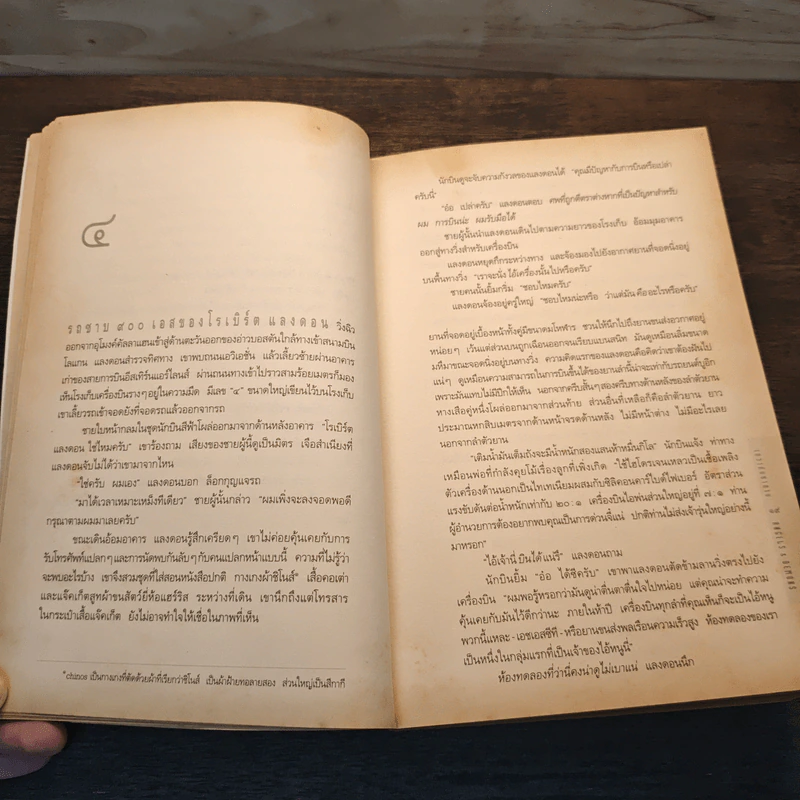 ๔
รถซาบ ๙๐๐ เอสของโรเบิร์ต แลงดอน วิ่งฉิว
ออกจากอุโมงค์คัลลาแฮนเข้าสู่ด้านตะวันออกของอ่าวบอสตันใกล้ทางเข้าสนามบิน
โลแกน แลงดอนสำรวจทิศทาง เขาพบถนนเอวิเอชั่น แล้วเลี้ยวซ้ายผ่านอาคาร
เก่าของสายการบินอีสเทิร์นแอร์ไลนส์ ผ่านถนนทางเข้าไปราวสามร้อยเมตรก็มอง
เห็นโรงเก็บเครื่องบินรางๆ อยู่ในความมืด มีเลข “๔” ขนาดใหญ่เขียนไว้บนโรงเก็บ
เขาเลี้ยวรถเข้าจอดยังที่จอดรถแล้วออกจากรถ
ชายใบหน้ากลมในชุดนักบินสีฟ้าโผล่ออกมาจากด้านหลังอาคาร “โรเบิร์ต
แลงดอน ใช่ไหมครับ” เขาร้องถาม เสียงของชายผู้นี้ดูเป็นมิตร เจือสำเนียงที่
แลงดอนจับไม่ได้ว่าเขามาจากไหน
“ใช่ครับ ผมเอง” แลงดอนบอก ล็อกกุญแจรถ
“มาได้เวลาเหมาะเหม็งทีเดียว” ชายผู้นั้นกล่าว “ผมเพิ่งจะลงจอดพอดี
กรุณาตามผมมาเลยครับ”
ขณะเดินอ้อมอาคาร แลงดอนรู้สึกเครียดๆ เขาไม่ค่อยคุ้นเคยกับการ
รับโทรศัพท์แปลกๆ และการนัดพบกันลับๆ กับคนแปลกหน้าแบบนี้ ความที่ไม่รู้ว่า
จะพบอะไรบ้าง เขาจึงสวมชุดที่ใส่สอนหนังสือปกติ กางเกงผ้าชิโนส์* เสื้อคอเต่า
และแจ็คเก็ตสูทผ้าขนสัตว์ยี่ห้อแฮร์ริส ระหว่างที่เดิน เขานึกถึงแต่โทรสาร
ในกระเป๋าเสื้อแจ็คเก็ต ยังไม่อาจทำใจให้เชื่อในภาพที่เห็น
*chinos เป็นกางเกงที่ตัดด้วยผ้าที่เรียกว่าชิโนส์ เป็นผ้าฝ้ายทอลายสอง ส่วนใหญ่เป็นสีกากี
นักบินดูจะจับความกังวลของแลงดอนได้ “คุณมีปัญหากับการบินหรือเปล่า
ครับนี่”
“อ๋อ เปล่าครับ” แลงดอนตอบ ศพที่ถูกตีตราต่างหากที่เป็นปัญหาสำหรับ
ผม การบินน่ะ ผมรับมือได้
ชายผู้นั้นนำแลงดอนเดินไปตามความยาวของโรงเก็บ อ้อมมุมอาคาร
ออกสู่ทางวิ่งสำหรับเครื่องบิน
แลงดอนหยุดกึกระหว่างทาง และจ้องมองไปยังอากาศยานที่จอดนิ่งอยู่
บนพื้นทางวิ่ง “เราจะนั่งไอ้เครื่องนั้นไปหรือครับ”
ชายคนนั้นยิ้มกริ่ม “ชอบไหมครับ”
แลงดอนจ้องอยู่ครู่ใหญ่ “ชอบไหมน่ะหรือ ว่าแต่มันคืออะไรหรือครับ”
ยานที่จอดอยู่เบื้องหน้าทั้งคู่มีขนาดมโหฬาร ชวนให้นึกไปถึงยานขนส่งอวกาศอยู่
หน่อยๆ เว้นแต่ส่วนบนถูกเฉือนออกจนเรียบแบนสนิท มันดูเหมือนลิ่มขนาด
มหึมาขณะจอดนิ่งอยู่บนทางวิ่ง ความคิดแรกของแลงดอนคือคิดว่าเขาต้องฝันไป
แน่ๆ ดูเหมือนความสามารถในการบินขึ้นได้ของยานลำนี้น่าจะเท่ากับรถยนต์บูอิก
เพราะมันแทบไม่มีปีกให้เห็น นอกจากครีบสั้นๆ สองครีบทางด้านหลังของลำตัวยาน
หางเสือคู่หนึ่งโผล่ออกมาจากส่วนท้าย ส่วนอื่นที่เหลือก็คือลำตัวยาน ยาว
ประมาณหกสิบเมตรจากด้านหน้าจรดด้านหลัง ไม่มีหน้าต่าง ไม่มีอะไรเลย
นอกจากลำตัวยาน
“เติมน้ำมันเต็มถังจะมีน้ำหนักสองแสนห้าหมื่นกิโล” นักบินแจ้ง ท่าทาง
เหมือนพ่อที่กำลังคุยโม้เรื่องลูกที่เพิ่งเกิด “ใช้ไฮโดรเจนเหลวเป็นเชื้อเพลิง
ตัวเครื่องด้านนอกเป็นไทเทเนียมผสมกับซิลิคอนคาร์ไบด์ไฟเบอร์ อัตราส่วน
แรงขับดันต่อน้ำหนักเท่ากับ ๒๐:๑ เครื่องบินไอพ่นส่วนใหญ่อยู่ที่ ๗:๑ ท่าน
ผู้อำนวยการต้องอยากพบคุณเป็นการด่วนจี๋แน่ ปกติท่านไม่ส่งเจ้ารุ่นใหญ่อย่างนี้
มาหรอก”
“ไอ้เจ้านี่บินได้แน่รึ” แลงดอนถาม
นักบินยิ้ม “อ๋อ ได้ซิครับ” เขาพาแลงดอนตัดข้ามลานวิ่งตรงไปยัง
เครื่องบิน “ผมพอรู้หรอกว่ามันดูน่าตื่นตาตื่นใจไปหน่อย แต่คุณน่าจะทำความ
คุ้นเคยกับมันไว้ดีกว่านะ ภายในห้าปี เครื่องบินทุกลำที่คุณเห็นก็จะเป็นไอ้หนู
พวกนี้แหละ - เอชเอสซีที - หรือยานขนส่งพลเรือนความเร็วสูง ห้องทดลองของเรา
เป็นหนึ่งในกลุ่มแรกที่เป็นเจ้าของไอ้หนูนี่”
ห้องทดลองที่ว่านี่คงน่าดูไม่เบาแน่ แลงดอนนึก